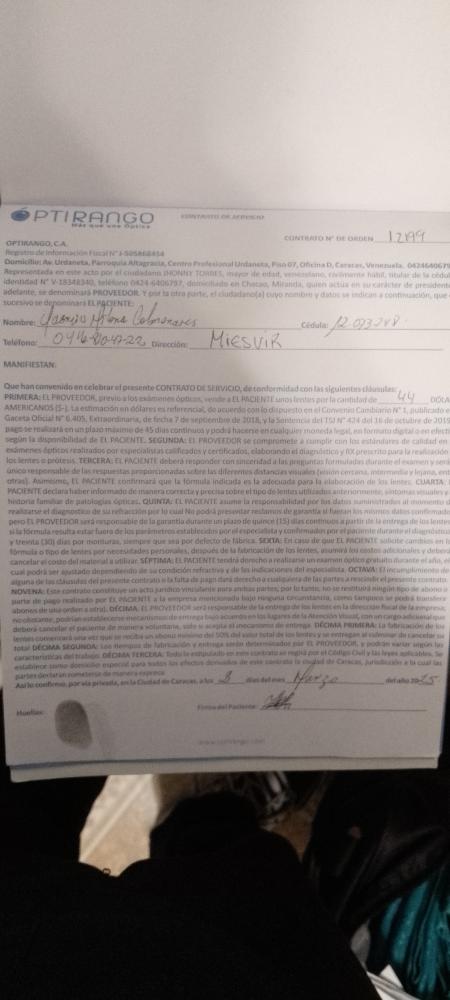 OPTIRANGO
Más que una Óptica
CONTRATO DE SERVICIO
CONTRATO N° DE ORDEN 12199
OPTIRANGO, C.A.
Registro de Información Fiscal N° J-505868454
Domicilio: Av. Urdaneta, Parroquia Altagracia, Centro Profesional Urdaneta, Piso 07, Oficina D, Caracas, Venezuela. 0424640679
Representada en este acto por el ciudadano JHONNY TORRES, mayor de edad, venezolano, civilmente hábil, titular de la cédul
identidad N° V-18348340, teléfono 0424-6406797, domiciliado en Chacao, Miranda, quien actúa en su carácter de president
adelante, se denominará PROVEEDOR. Y por la otra parte, el ciudadano(a) cuyo nombre y datos se indican a continuación, que
sucesivo se denominará EL PACIENTE:
Nombre: Colmenares Cédula: 12.073248
Teléfono: Dirección: MIESVIR
MANIFIESTAN:
Que han convenido en celebrar el presente CONTRATO DE SERVICIO, de conformidad con las siguientes cláusulas:
PRIMERA: EL PROVEEDOR, previo a los exámenes ópticos, vende a EL PACIENTE unos lentes por la cantidad de 44 DÓLA
AMERICANOS ($-). La estimación en dólares es referencial, de acuerdo con lo dispuesto en el Convenio Cambiario N° 1, publicado e
Gaceta Oficial N° 6.405, Extraordinaria, de fecha 7 de septiembre de 2018, y la Sentencia del TSJ N° 424 del 16 de octubre de 2019
pago se realizará en un plazo máximo de 45 días continuos y podrá hacerse en cualquier moneda legal, en formato digital o en efect
según la disponibilidad de EL PACIENTE. SEGUNDA: EL PROVEEDOR se compromete a cumplir con los estándares de calidad en
exámenes ópticos realizados por especialistas calificados y certificados, elaborando el diagnóstico y RX prescrito para la realización
los lentes o prótesis. TERCERA: EL PACIENTE deberá responder con sinceridad a las preguntas formuladas durante el examen y será
único responsable de las respuestas proporcionadas sobre las diferentes distancias visuales (visión cercana, intermedia y lejana, ent
otras). Asimismo, EL PACIENTE confirmará que la fórmula indicada es la adecuada para la elaboración de los lentes. CUARTA:
PACIENTE declara haber informado de manera correcta y precisa sobre el tipo de lentes utilizados anteriormente, síntomas visuales y
historia familiar de patologías ópticas. QUINTA: EL PACIENTE asume la responsabilidad por los datos suministrados al momento d
realizarse el diagnostico de su refracción por lo cual No podrá presentar reclamos de garantía si fueron los mismos datos confirmad
pero EL PROVEEDOR será responsable de la garantía durante un plazo de quince (15) días continuos a partir de la entrega de los lente
si la fórmula resulta estar fuera de los parámetros establecidos por el especialista y confirmados por el paciente durante el diagnóstic
y treinta (30) días por monturas, siempre que sea por defecto de fábrica. SEXTA: En caso de que EL PACIENTE solicite cambios en l
fórmula o tipo de lentes por necesidades personales, después de la fabricación de los lentes, asumirá los costos adicionales y deberá
cancelar el costo del material a utilizar. SÉPTIMA: EL PACIENTE tendrá derecho a realizarse un examen óptico gratuito durante el año, e
cual podrá ser ajustado dependiendo de su condición refractiva y de las indicaciones del especialista. OCTAVA: El incumplimiento de
alguna de las cláusulas del presente contrato o la falta de pago dará derecho a cualquiera de las partes a rescindir el presente contrato.
NOVENA: Este contrato constituye un acto jurídico vinculante para ambas partes; por lo tanto, no se restituirá ningún tipo de abono o
parte de pago realizado por EL PACIENTE a la empresa mencionada bajo ninguna circunstancia, como tampoco se podrá transferir
abonos de una orden a otra). DÉCIMA: EL PROVEEDOR será responsable de la entrega de los lentes en la dirección fiscal de la empresa;
no obstante, podrían establecerse mecanismos de entrega bajo acuerdo en los lugares de la Atención Visual, con un cargo adicional que
deberá cancelar el paciente de manera voluntaria, solo si acepta el mecanismo de entrega. DÉCIMA PRIMERA: La fabricación de los
lentes comenzará una vez que se reciba un abono mínimo del 50% del valor total de los lentes y se entregan al culminar de cancelar su
total DÉCIMA SEGUNDA: Los tiempos de fabricación y entrega serán determinados por EL PROVEEDOR, y podrán variar según las
características del trabajo. DÉCIMA TERCERA: Todo lo estipulado en este contrato se regirá por el Código Civil y las leyes aplicables. Se
establece como domicilio especial para todos los efectos derivados de este contrato la ciudad de Caracas, jurisdicción a la cual las
partes declaran someterse de manera expresa
Así lo confirme, por vía privada, en la Ciudad de Caracas, a los 8 días del mes Marzo del año 2025
Huellas: Firma del Paciente:
www.optirango.com